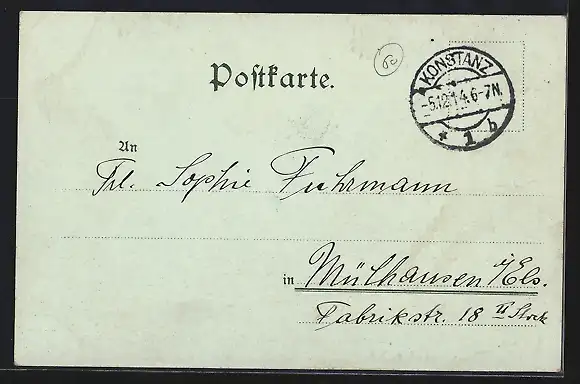 Postkarte.
KONSTANZ
-5.12.14.6-7N.
* 1 b
An
Frl. Sophie Fuhrmann
in Mülhausen i/Els.
Fabrikstr. 18 II Stock